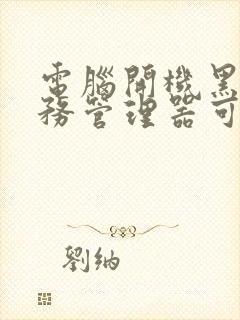 電腦開機黑
務管理器可
劉納